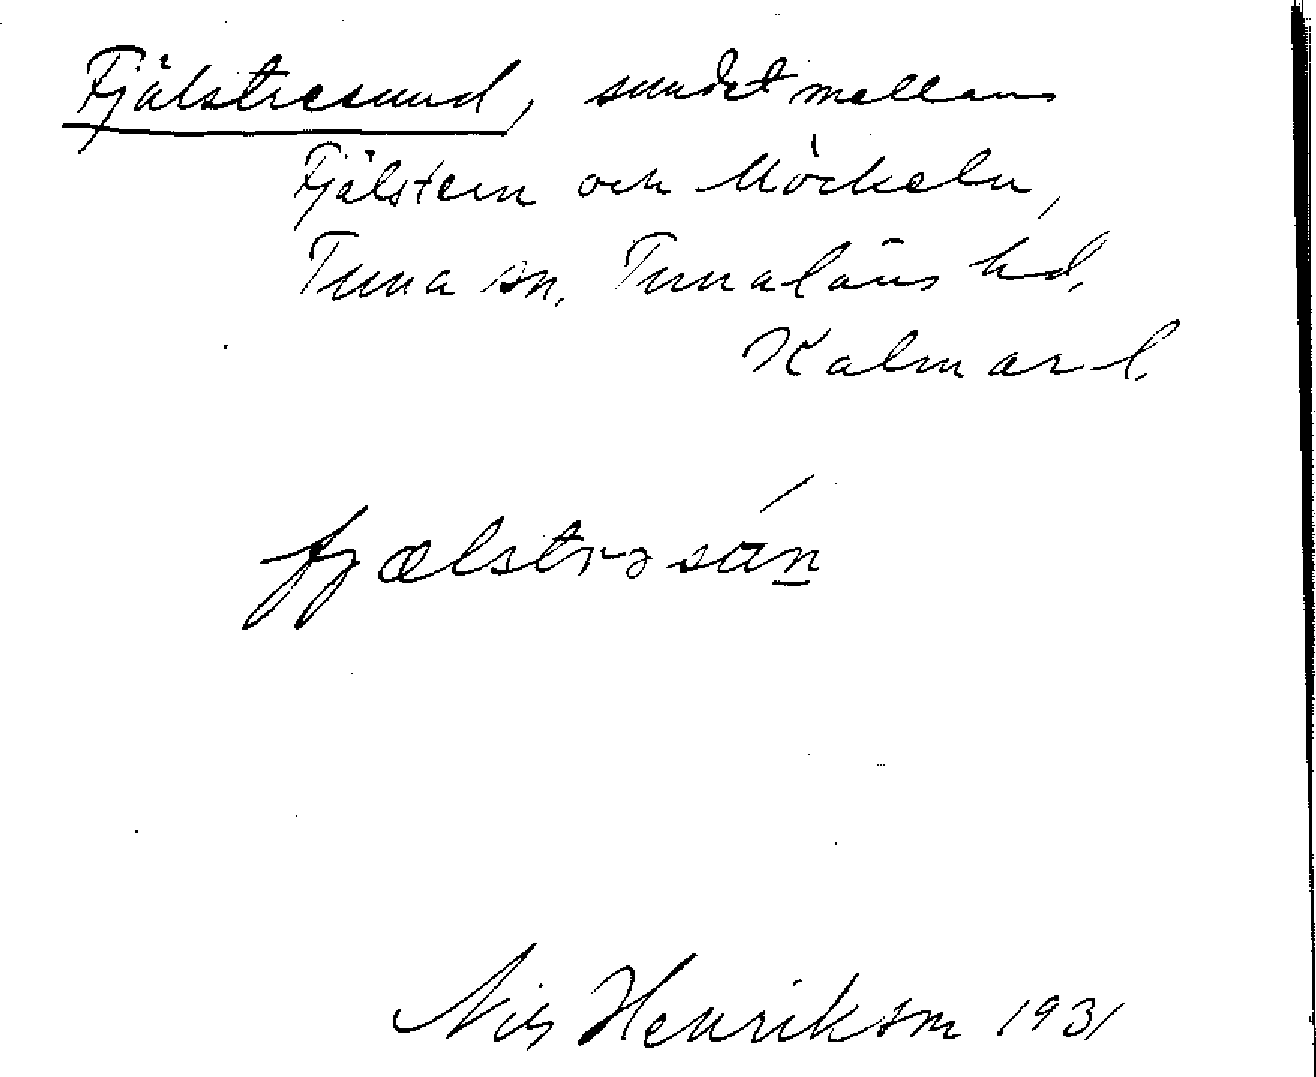 Fjälstresund, sundet mellan
Fjälstern och Möckeln,
Tuna sn, Tunaläns hd,
Kalmar l.
fjælstrəsún
Nils Henriksson 1931